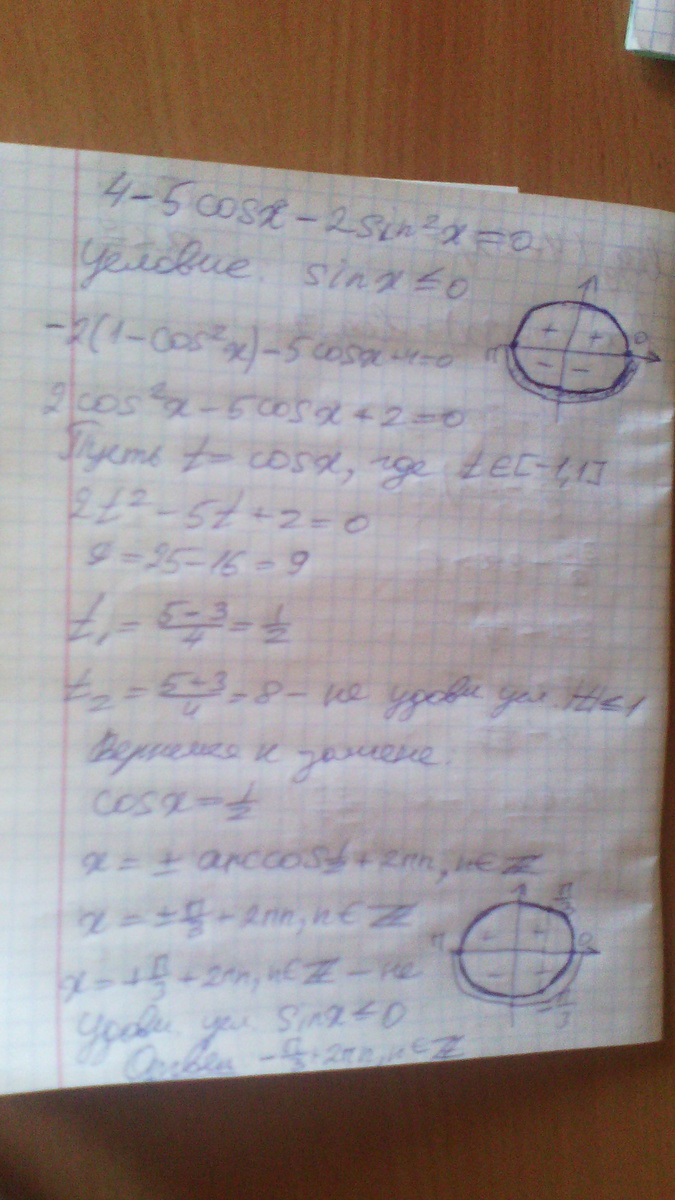 4-5cosx-2sin²x=0
Условие. sinx≤0
-2(1-cos²x)-5cosx+4=0
2cos²x-5cosx+2=0
Пусть t=cosx, где t∈[-1,1]
2t²-5t+2=0
Д=25-16=9
t₁=(5-3)/4=1/2
t₂=(5+3)/4=8 - не удовл усл. |t|≤1
Вернемся к замене:
cosx=1/2
x=± arccos1/2+2πn, n∈Z
x=±π/3+2πn, n∈Z
x=+π/3+2πn, n∈Z - не
удовл. усл. sinx≤0
Ответ. -π/3+2πn, n∈Z
π
0
+ +
- -
π/3
π
0
-π/3